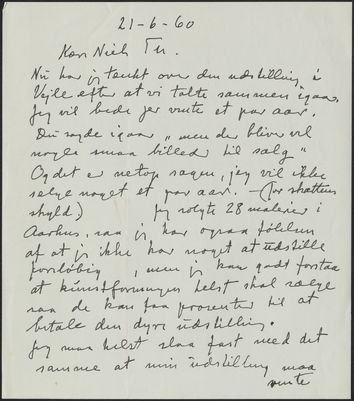 21-6-60
Kære Niels Th.
Nu har jeg tænkt over den udstilling i
Vejle efter at vi talte sammen igaar.
Jeg vil bede jer vente et par aar.
Du sagde igaar „men der bliver vel
nogle smaa billeder til salg"
Og det er netop sagen, jeg vil ikke
sælge noget et par aar. — (for skattens
skyld.) Jeg solgte 28 malerier i
Aarhus, saa jeg har ogsaa følelsen
af at jeg ikke har noget at udstille
foreløbig, men jeg kan godt forstaa
at kunstforeninger helst skal sælge
saa de kan faa procenter til at
betale den dyre udstilling.
Jeg maa helst slaa fast med det
samme at min udstilling maa
vente